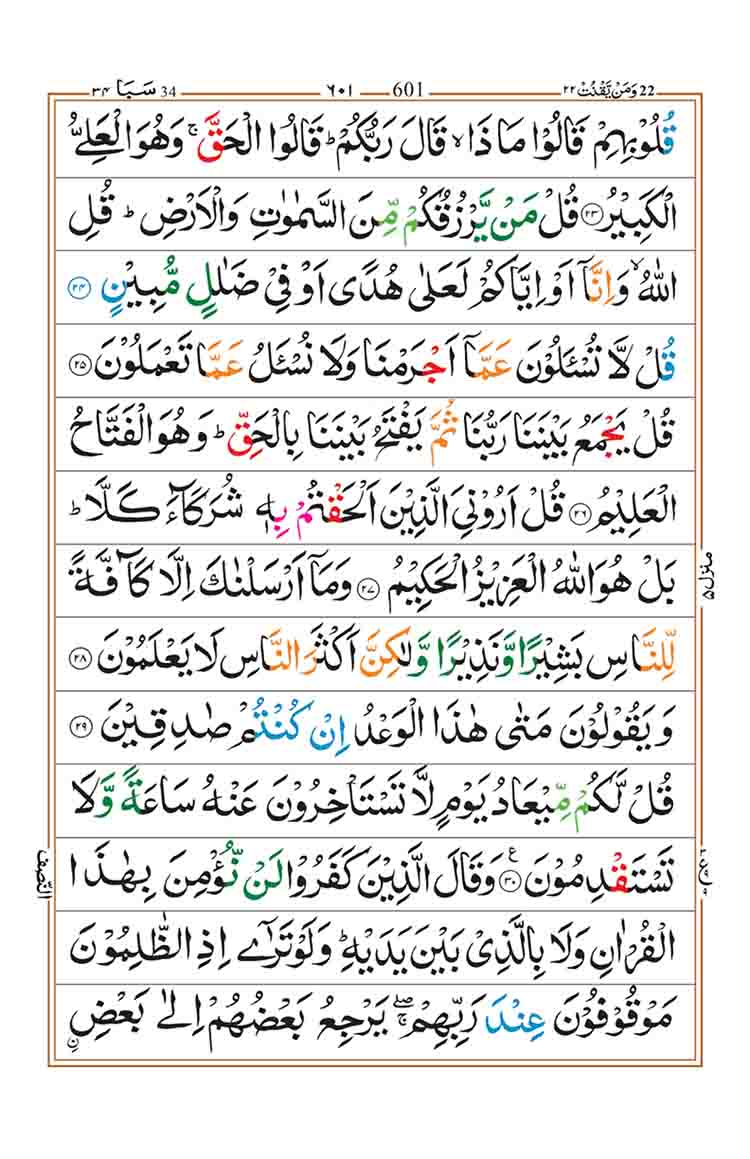 ۳۴ سَبَا 34 ۶۰۱ 601 ۲۲ وَمَنْ يَّقْنُتْ 22
قُلُوْبِهِمْ قَالُوْا مَاذَا ۙ قَالَ رَبُّكُمْ ؕ قَالُوا الْحَقَّ ۚ وَهُوَ الْعَلِىُّ
الْكَبِيْرُ ۲۳ قُلْ مَنْ يَّرْزُقُكُمْ مِّنَ السَّمٰوٰتِ وَالْاَرْضِ ؕ قُلِ
اللّٰهُ ۙ وَاِنَّاۤ اَوْ اِيَّاكُمْ لَعَلٰى هُدًى اَوْ فِىْ ضَلٰلٍ مُّبِيْنٍ ۲۴
قُلْ لَّا تُسْـَٔلُوْنَ عَمَّاۤ اَجْرَمْنَا وَلَا نُسْـَٔلُ عَمَّا تَعْمَلُوْنَ ۲۵
قُلْ يَجْمَعُ بَيْنَنَا رَبُّنَا ثُمَّ يَفْتَحُ بَيْنَنَا بِالْحَقِّ ؕ وَهُوَ الْفَتَّاحُ
الْعَلِيْمُ ۲۶ قُلْ اَرُوْنِىَ الَّذِيْنَ اَلْحَقْتُمْ بِهٖ شُرَكَآءَ كَلَّا ؕ
بَلْ هُوَ اللّٰهُ الْعَزِيْزُ الْحَكِيْمُ ۲۷ وَمَاۤ اَرْسَلْنٰكَ اِلَّا كَآفَّةً
لِّلنَّاسِ بَشِيْرًا وَّنَذِيْرًا وَّلٰكِنَّ اَكْثَرَ النَّاسِ لَا يَعْلَمُوْنَ ۲۸
وَيَقُوْلُوْنَ مَتٰى هٰذَا الْوَعْدُ اِنْ كُنْتُمْ صٰدِقِيْنَ ۲۹
قُلْ لَّكُمْ مِّيْعَادُ يَوْمٍ لَّا تَسْتَاْخِرُوْنَ عَنْهُ سَاعَةً وَّلَا
تَسْتَقْدِمُوْنَ ۳۰ ع وَقَالَ الَّذِيْنَ كَفَرُوْا لَنْ نُّؤْمِنَ بِهٰذَا
الْقُرْاٰنِ وَلَا بِالَّذِىْ بَيْنَ يَدَيْهِ ؕ وَلَوْ تَرٰٓى اِذِ الظّٰلِمُوْنَ
مَوْقُوْفُوْنَ عِنْدَ رَبِّهِمْ ۖۚ يَرْجِعُ بَعْضُهُمْ اِلٰى بَعْضِ ۨ
منزل ۵
النّصف